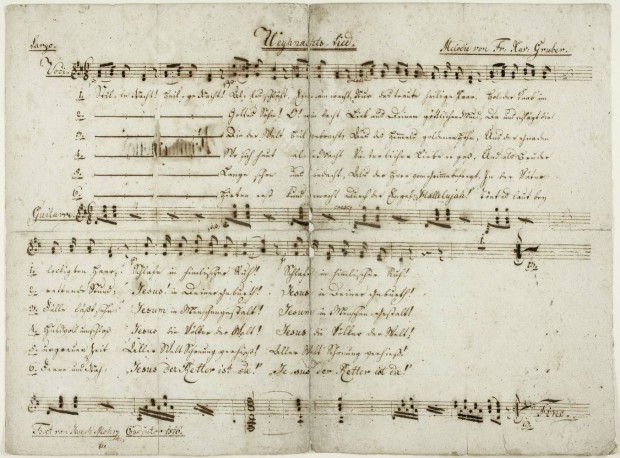 Largo.
Weyhnachts-Lied.
Melodie von Fr. Xav. Gruber.
Voce.
1. Stille Nacht! Heilige Nacht! Alles schläft. Einsam wacht, Nur das traute heilige Paar, Holder Knab im
2. Gottes Sohn! O! wie lacht Lieb aus Deinem göttlichen Mund, Da uns schlägt die
3. Die der Welt Heil gebracht, Aus des Himmels goldenen Höhn, Aus der Gnaden
4. Wo sich heut alle Macht Väterlicher Liebe ergoß, Und als Bruder
5. Lange schon uns bedacht, Als der Herr vom Grimme befreyt, In der Väter
6. Hirten erst kund gemacht Durch der Engel Hallelujah! Tönt es laut bey
Guitarre.
1. lockigten Haar, Schlafe in himlischer Ruh! Schlafe in himlischer Ruh!
2. rettende Stund, Jesus! in Deiner Geburth! Jesus in Deiner Geburth!
3. Fülle läßt sehn Jesum in Menschengestalt! Jesum in Menschengestalt!
4. huldvoll umschloß Jesus die Völker der Welt! Jesus die Völker der Welt!
5. urgrauer Zeit Aller Welt Schonung verhieß! Aller Welt Schonung verhieß!
6. Ferne und Nah, Jesus der Retter ist da! Jesus der Retter ist da!
Fine.
Text von Joseph Mohr Coadjutor 1816.